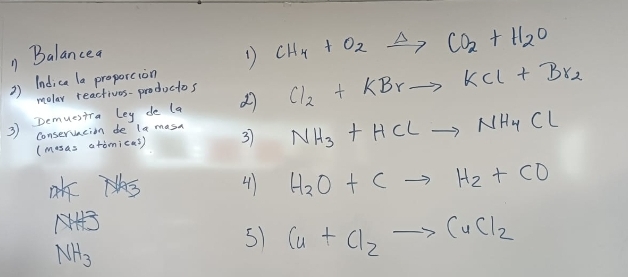 1) Balancea
2) Indica la proporción
molar reactivos-productos
3) Demuestra Ley de la
conservación de la masa
(masas atómicas)
NH3
NH3
NH3
1) CH4 + O2 Δ→ CO2 + H2O
2) Cl2 + KBr → KCl + Br2
3) NH3 + HCL → NH4 CL
4) H2O + C → H2 + CO
5) Cu + Cl2 → CuCl2